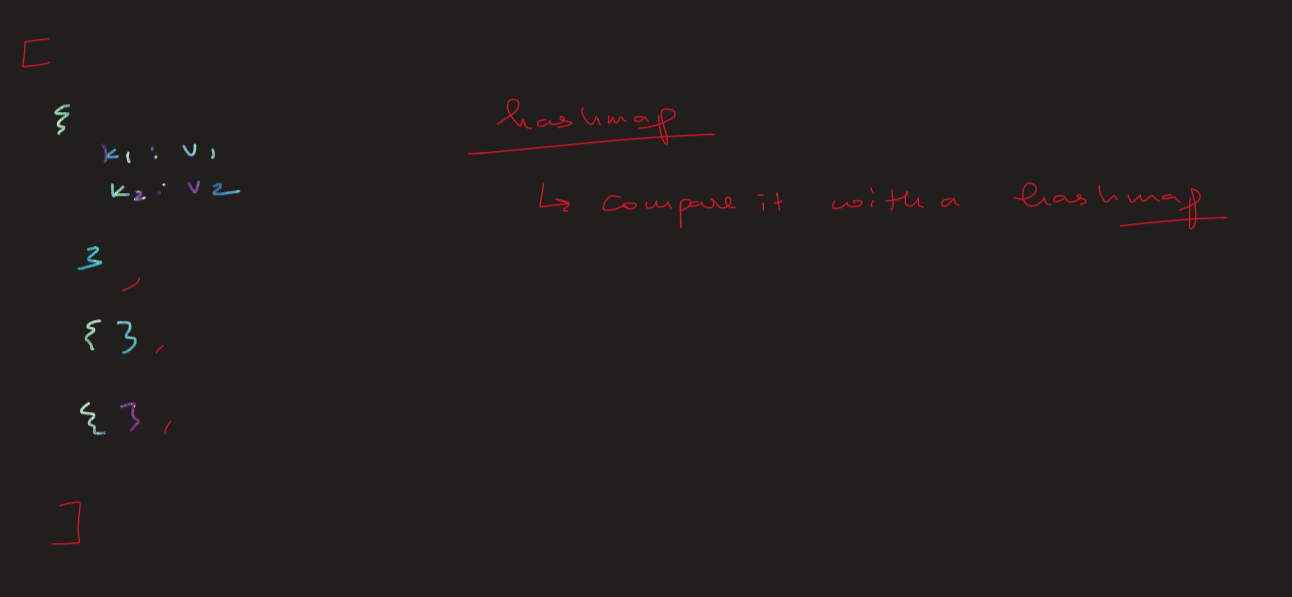 [
{
k1 : v1
k2 : v2
},
{ },
{ },
]
hashmap
↳ compare it with a hashmap